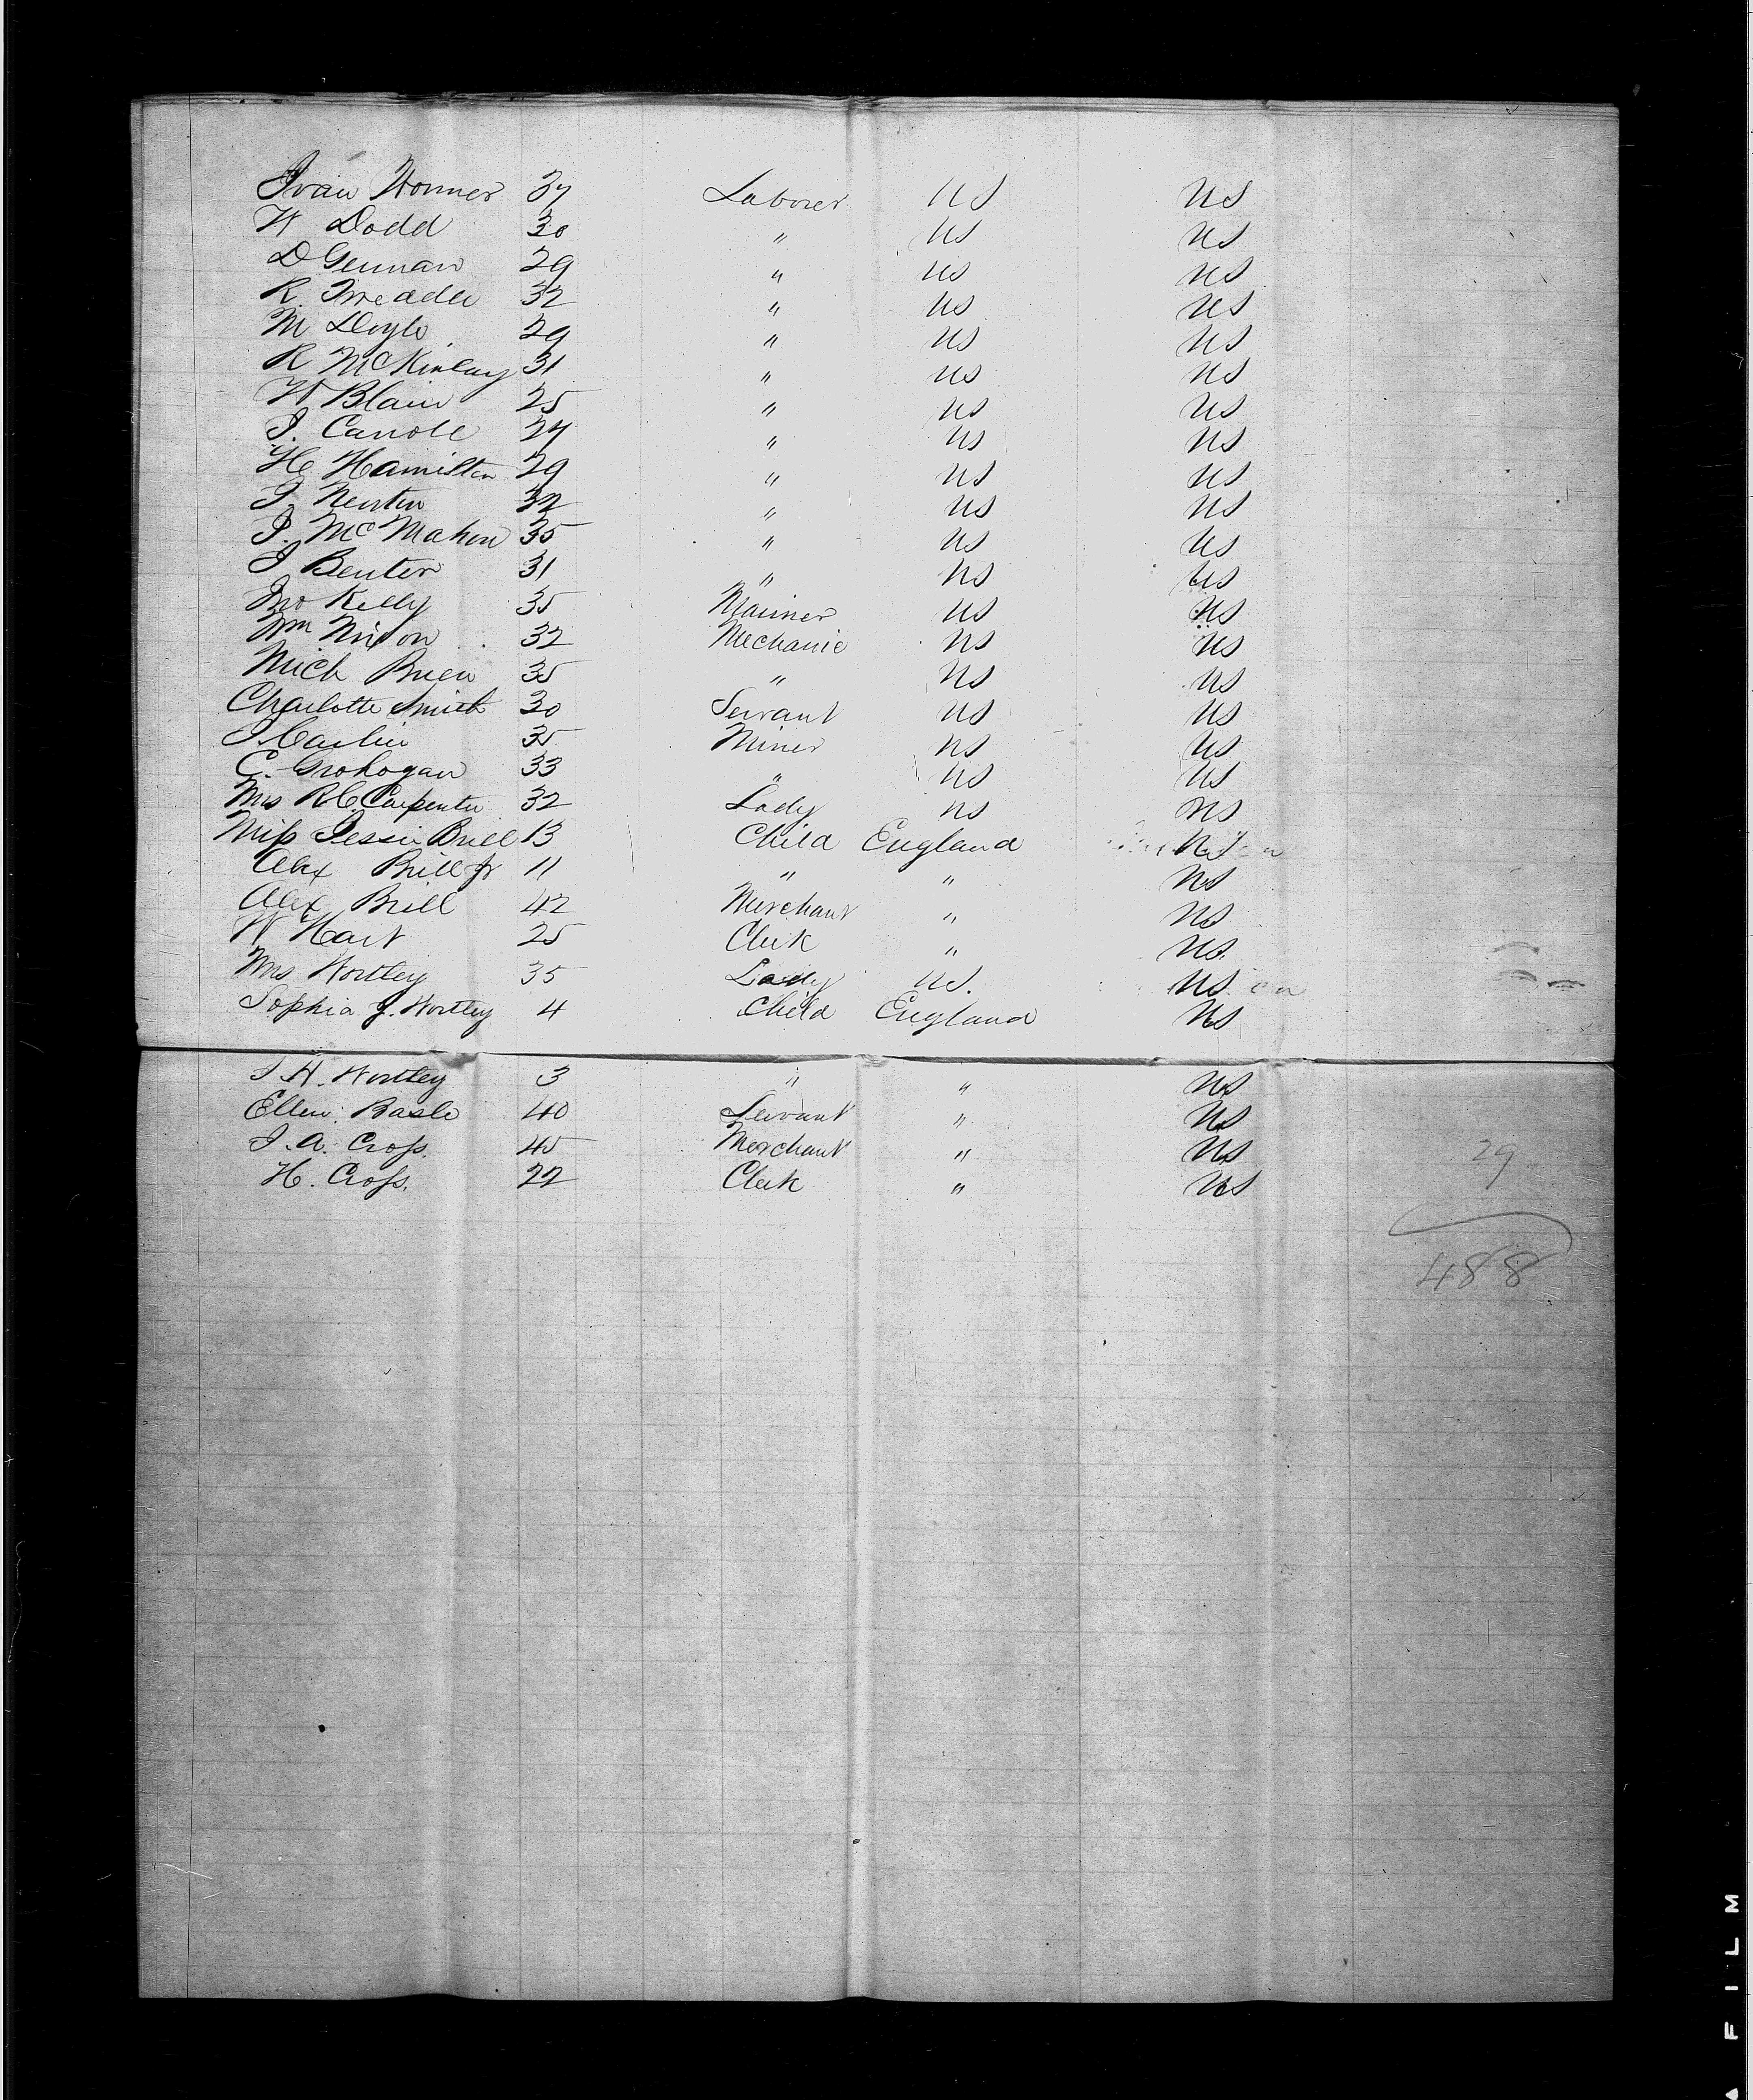 Ivan Wonner 37 Laborer US US
W Dodd 30 " US US
D Gennan 29 " US US
R. 32 " US US
M Doyle 29 " US US
R McKinlay 31 " US US
W Blain 25 " US US
J. Carroll 24 " US US
H. Hamilton 29 " US US
J. Newton 32 " US US
J. McMahon 35 " US US
J Benter 31 " US US
Jno Kelly 35 Mariner US US
Wm Nixon 32 Mechanic US US
Mich Brien 35 " US US
Charlotte Smith 30 Servant US US
J. Carlin 35 Miner US US
C. Grohogan 33 " US US
Mrs R.C. Carpenter 32 Lady US US
Miss Jessie Brill 13 Child England US
Alex Brill Jr 11 " " US
Alex Brill 42 Merchant " US
W Hart 25 Clerk " US.
Mrs Wortley 35 Lady US. US
Sophia J. Wortley 4 Child England US
J H. Wortley 3 " " US
Ellen Basle 40 Servant " US
J. A. Cross. 45 Merchant " US
H. Cross. 22 Clerk " US
29
488
A FILM